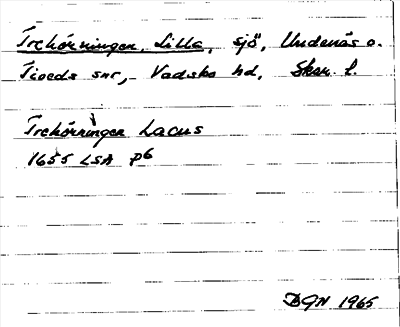 Trehörningen, Lilla, sjö, Undenäs o.
Tiveds snr, Vadsbo hd, Skar. l.
Trehörningen Lacus
1655 LSA p6
BGN 1965